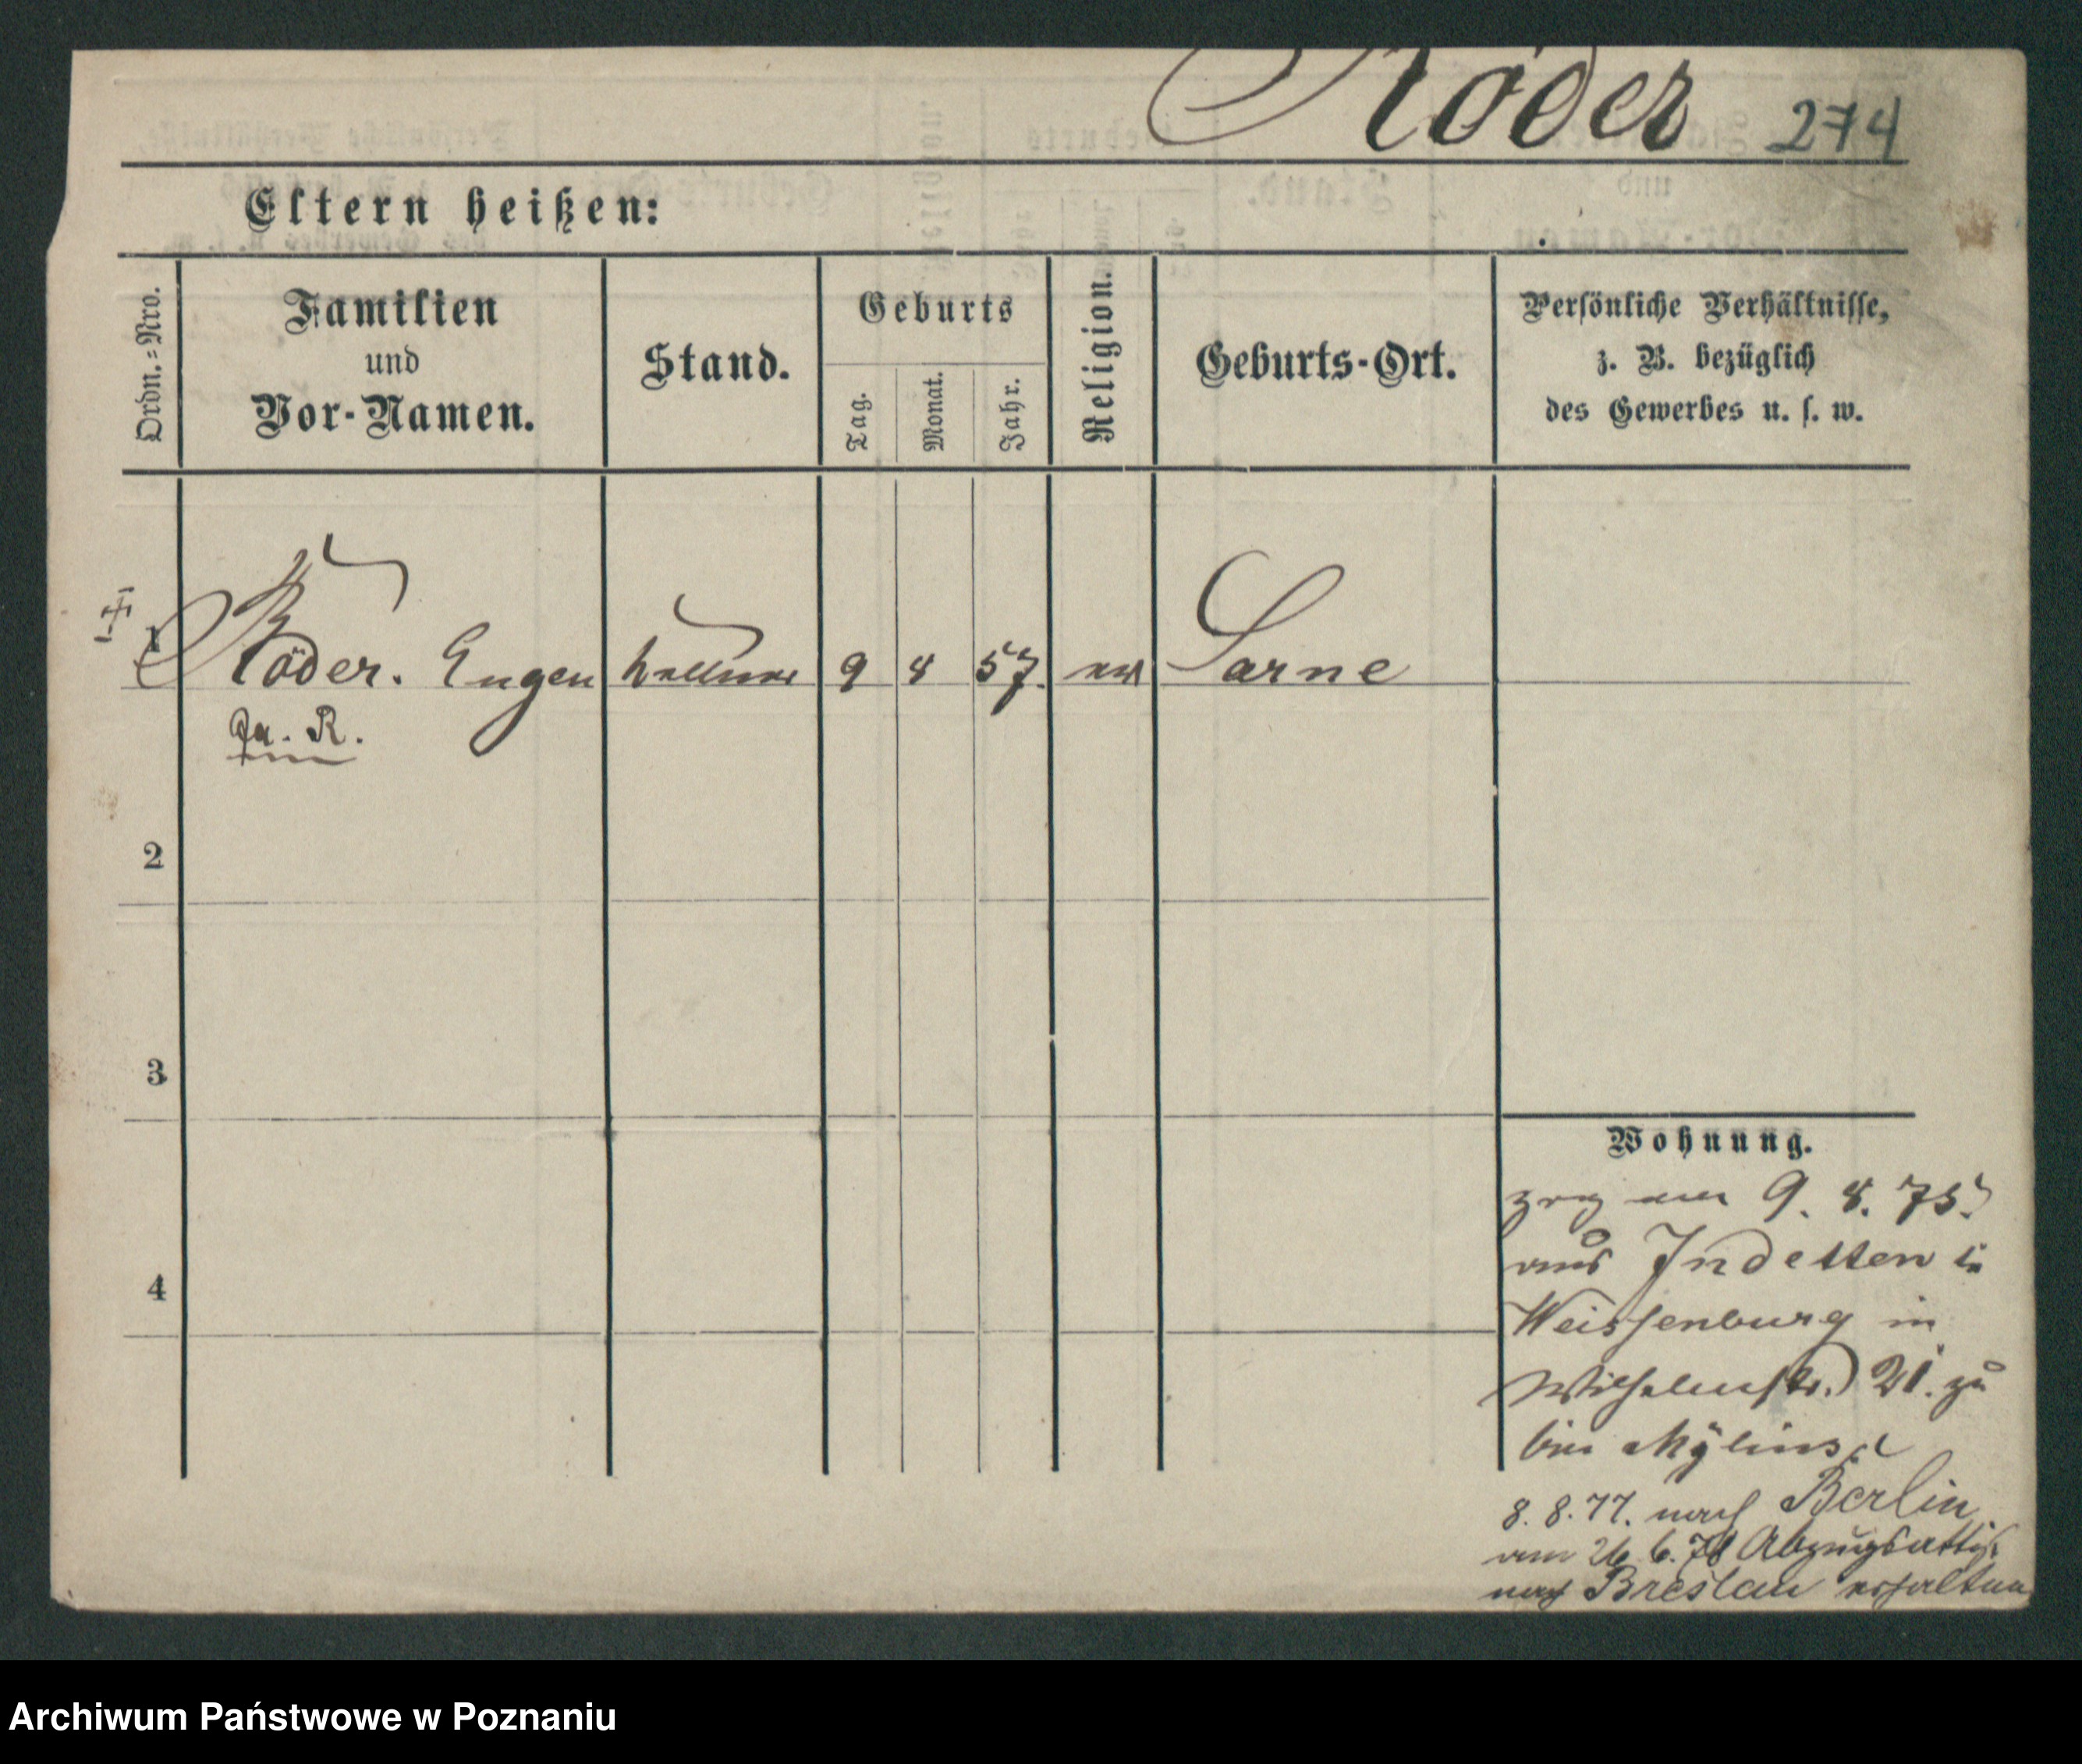 Röder 274
Eltern heißen:
Ordn.=Nro.
Familien
und
Vor-Namen.
Stand.
Geburts
Tag.
Monat.
Jahr.
Religion.
Geburts-Ort.
Persönliche Verhältnisse,
z. B. bezüglich
des Gewerbes u. s. w.
1 Röder. Eugen Kellner 9 8 57. ev Sarne
R.
2
3
4
Wohnung.
zog am 9. 8. 75.
aus Indetten in
Weissenburg in
Wilhelmstr. 21. zu
bei Mylius
8. 8. 77. nach Berlin
am 26 6. 78 Abzugsattest
nach Breslau erhalten
Archiwum Państwowe w Poznaniu